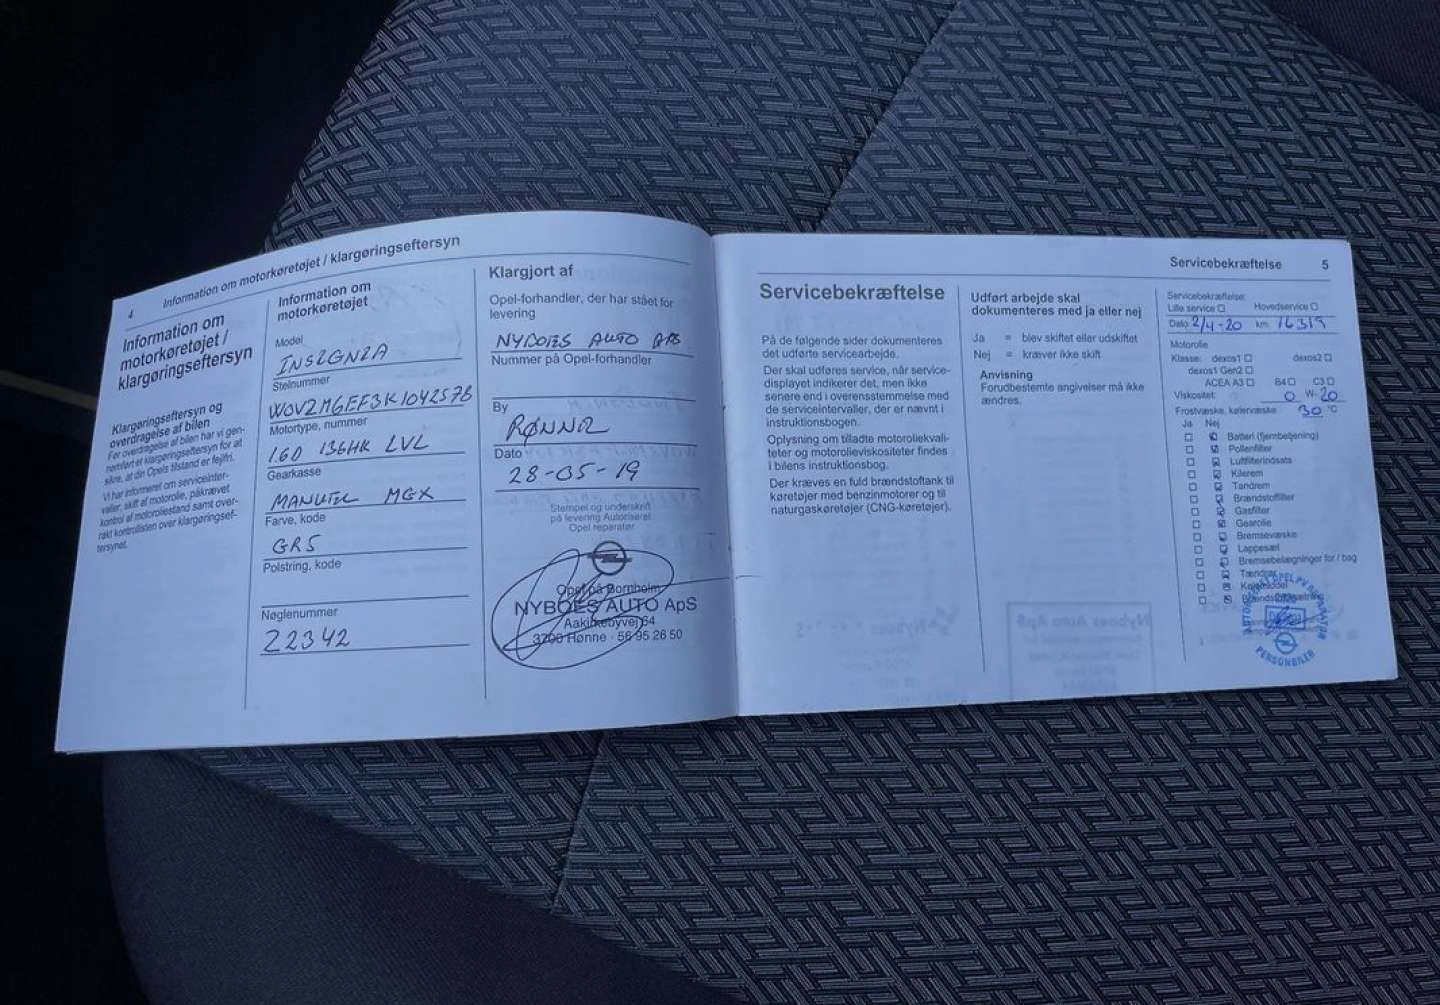 4 Information om motorkøretøjet / klargøringseftersyn
Information om
motorkøretøjet /
klargøringseftersyn
Klargøringseftersyn og
overdragelse af bilen
Før overdragelse af bilen har vi gen-
nemført et klargøringseftersyn for at
sikre, at din Opels tilstand er fejlfri.
Vi har informeret om serviceinter-
valler, skift af motorolie, påkrævet
kontrol af motoroliestand samt over-
rakt kontrollisten over klargøringsef-
tersynet.
Information om
motorkøretøjet
Model
INSIGNIA
Stelnummer
W0VZM6EF3K1042578
Motortype, nummer
1.60 136HK LVL
Gearkasse
MANUEL MGX
Farve, kode
GR5
Polstring, kode
Nøglenummer
Z2342
Klargjort af
Opel-forhandler, der har stået for
levering
NYBOES AUTO APS
Nummer på Opel-forhandler
By
RØNNE
Dato
28-05-19
Stempel og underskrift
på levering Autoriseret
Opel reparatør
Opel på Bornholm
NYBOES AUTO ApS
Aakirkebyvej 64
3700 Rønne · 56 95 26 50
Servicebekræftelse 5
Servicebekræftelse
På de følgende sider dokumenteres
det udførte servicearbejde.
Der skal udføres service, når service-
displayet indikerer det, men ikke
senere end i overensstemmelse med
de serviceintervaller, der er nævnt i
instruktionsbogen.
Oplysning om tilladte motoroliekvali-
teter og motorolieviskositeter findes
i bilens instruktionsbog.
Der kræves en fuld brændstoftank til
køretøjer med benzinmotorer og til
naturgaskøretøjer (CNG-køretøjer).
Udført arbejde skal
dokumenteres med ja eller nej
Ja = blev skiftet eller udskiftet
Nej = kræver ikke skift
Anvisning
Forudbestemte angivelser må ikke
ændres.
Servicebekræftelse:
Lille service Hovedservice
Dato 2/4-20 km 16319
Motorolie
Klasse: dexos1 dexos2
dexos1 Gen2
ACEA A3 B4 C3
Viskositet: 0 W- 20
Frostvæske, kølervæske 30 °C
Ja Nej
Batteri (fjernbetjening)
Pollenfilter
Luftfilterindsats
Kilerem
Tandrem
Brændstoffilter
Gasfilter
Gearolie
Bremsevæske
Lappesæt
Bremsebelægninger for / bag
Tændrør
Kølemiddel
PERSONBILER